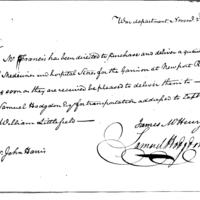 War department
Mr Francis has been directed to purchase and deliver a
Medicine and hospital Stores for the Garrison at Newport
as soon as they are received be pleased to deliver them to
Samuel Hodgdon Esqr for transportation addressed to Capt
William Littlefield
James McHenry
Samuel Hodgdon
John Harris